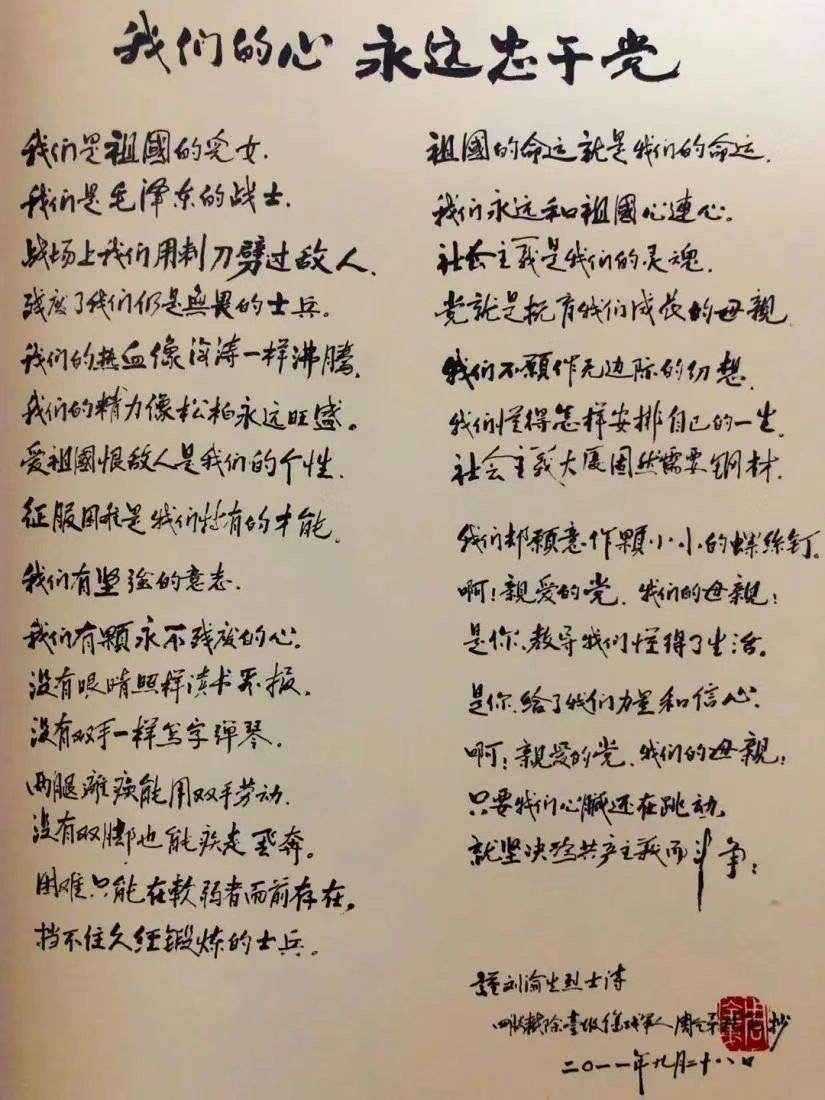 我们的心 永远忠于党
我们是祖國的児女.
我们是毛泽东的战士.
战场上我们用刺刀劈过敌人.
残废了我们仍是無畏的士兵。
我们的热血像海涛一样沸騰.
我们的精力像松柏永远旺盛。
爱祖國恨敌人是我们的个性.
征服困难是我们特有的才能.
我们有坚强的意志.
我们有顆永不残废的心.
没有眼睛照样读书看报。
没有双手一样写字弹琴.
两腿瘫痪能用双手劳动.
没有双脚也能疾走飛奔。
困难只能在軟弱者面前存在.
挡不住久经鍛炼的士兵。
祖國的命运就是我们的命运.
我们永远和祖國心連心。
社会主义是我们的灵魂.
党就是抚育我们成长的母親
我们不願作无边际的幻想.
我们懂得怎样安排自己的一生.
社会主義大厦固然需要鋼材.
我们却願意作顆小小的螺絲钉。
啊！親爱的党.我们的母親！
是你.教导我们懂得了生活。
是你.给了我们力量和信心.
啊！親爱的党.我们的母親！
只要我们心臟还在跳动.
就坚决為共产主義而斗争！
刘渝生烈士诗
抄
二〇一一年九月二十八日